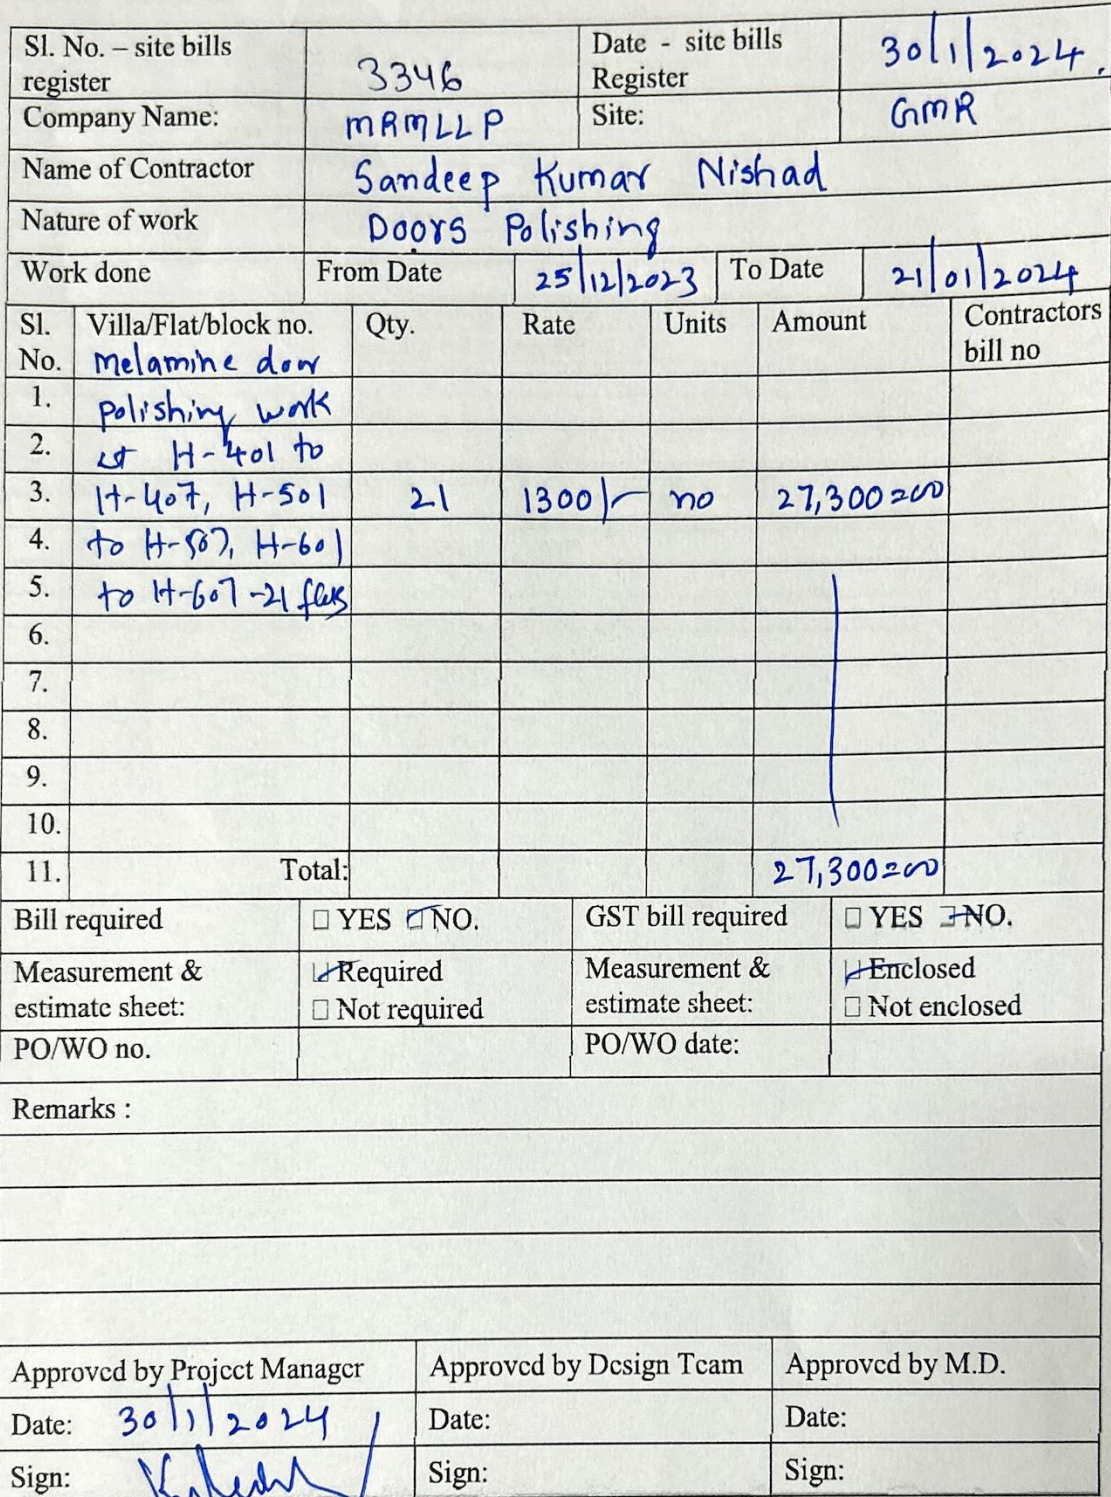 Sl. No. – site bills register 3346 Date - site bills Register 30/1/2024.
Company Name: MRMLLP Site: GMR
Name of Contractor Sandeep Kumar Nishad
Nature of work Doors Polishing
Work done From Date 25/12/2023 To Date 21/01/2024
Sl. No. Villa/Flat/block no. Qty. Rate Units Amount Contractors bill no
melamine door
1. polishing work
2. at H-401 to
3. H-407, H-501 21 1300/- no 27,300=00
4. to H-507, H-601
5. to H-607 -21
6.
7.
8.
9.
10.
11. Total: 27,300=00
Bill required ☐ YES ☑ NO. GST bill required ☐ YES ☑ NO.
Measurement & estimate sheet: ☑ Required Measurement & estimate sheet: ☑ Enclosed
☐ Not required ☐ Not enclosed
PO/WO no. PO/WO date:
Remarks :
Approved by Project Manager Approved by Design Team Approved by M.D.
Date: 30/1/2024 Date: Date:
Sign: Sign: Sign: